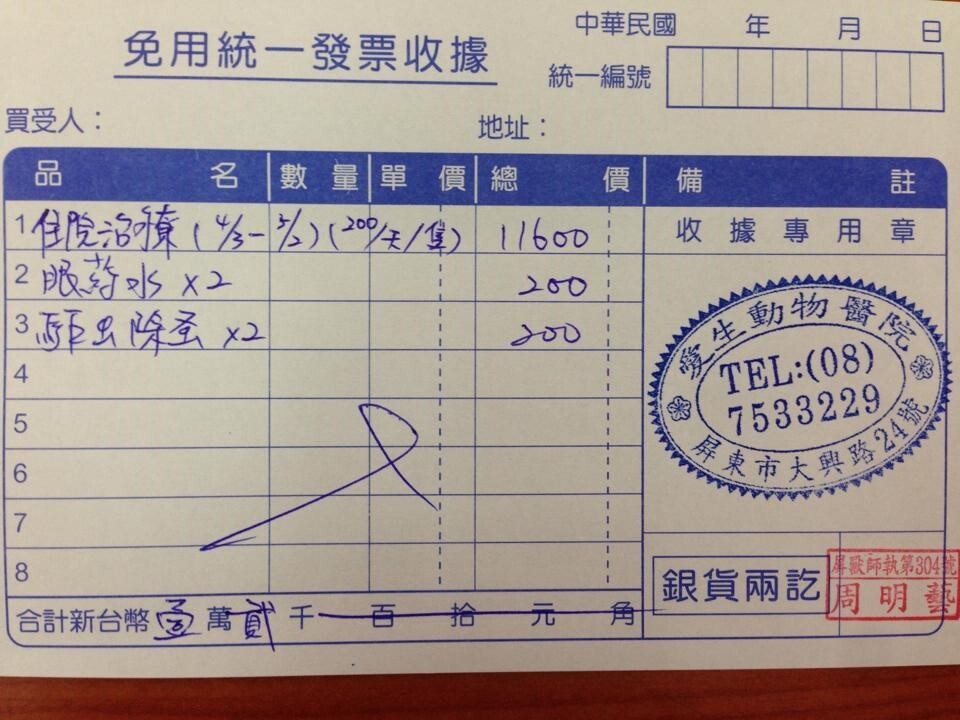 免用統一發票收據
中華民國 年 月 日
統一編號
買受人：
地址：
品名 數量 單價 總價 備註
1 住院治療 (4/3-5/2) (200/天/隻) 11600
收據專用章
2 眼葯水 x2 200
3 驅虫除蚤 x2 200
4
5
6
7
8
愛生動物醫院
TEL:(08)
7533229
屏東市大興路24號
銀貨兩訖
屏獸師執第304號
周明藝
合計新台幣 壹 萬 貳 千 百 拾 元 角